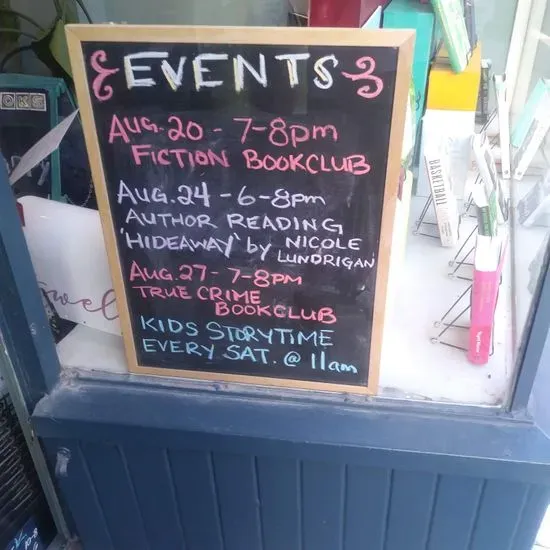 EVENTS
AUG. 20 - 7-8pm
FICTION BOOKCLUB
AUG. 24 - 6-8pm
AUTHOR READING
'HIDEAWAY' by NICOLE
LUNDRIGAN
AUG. 27 - 7-8pm
TRUE CRIME
BOOKCLUB
KIDS STORYTIME
EVERY SAT. @ 11am
BASKETBALL